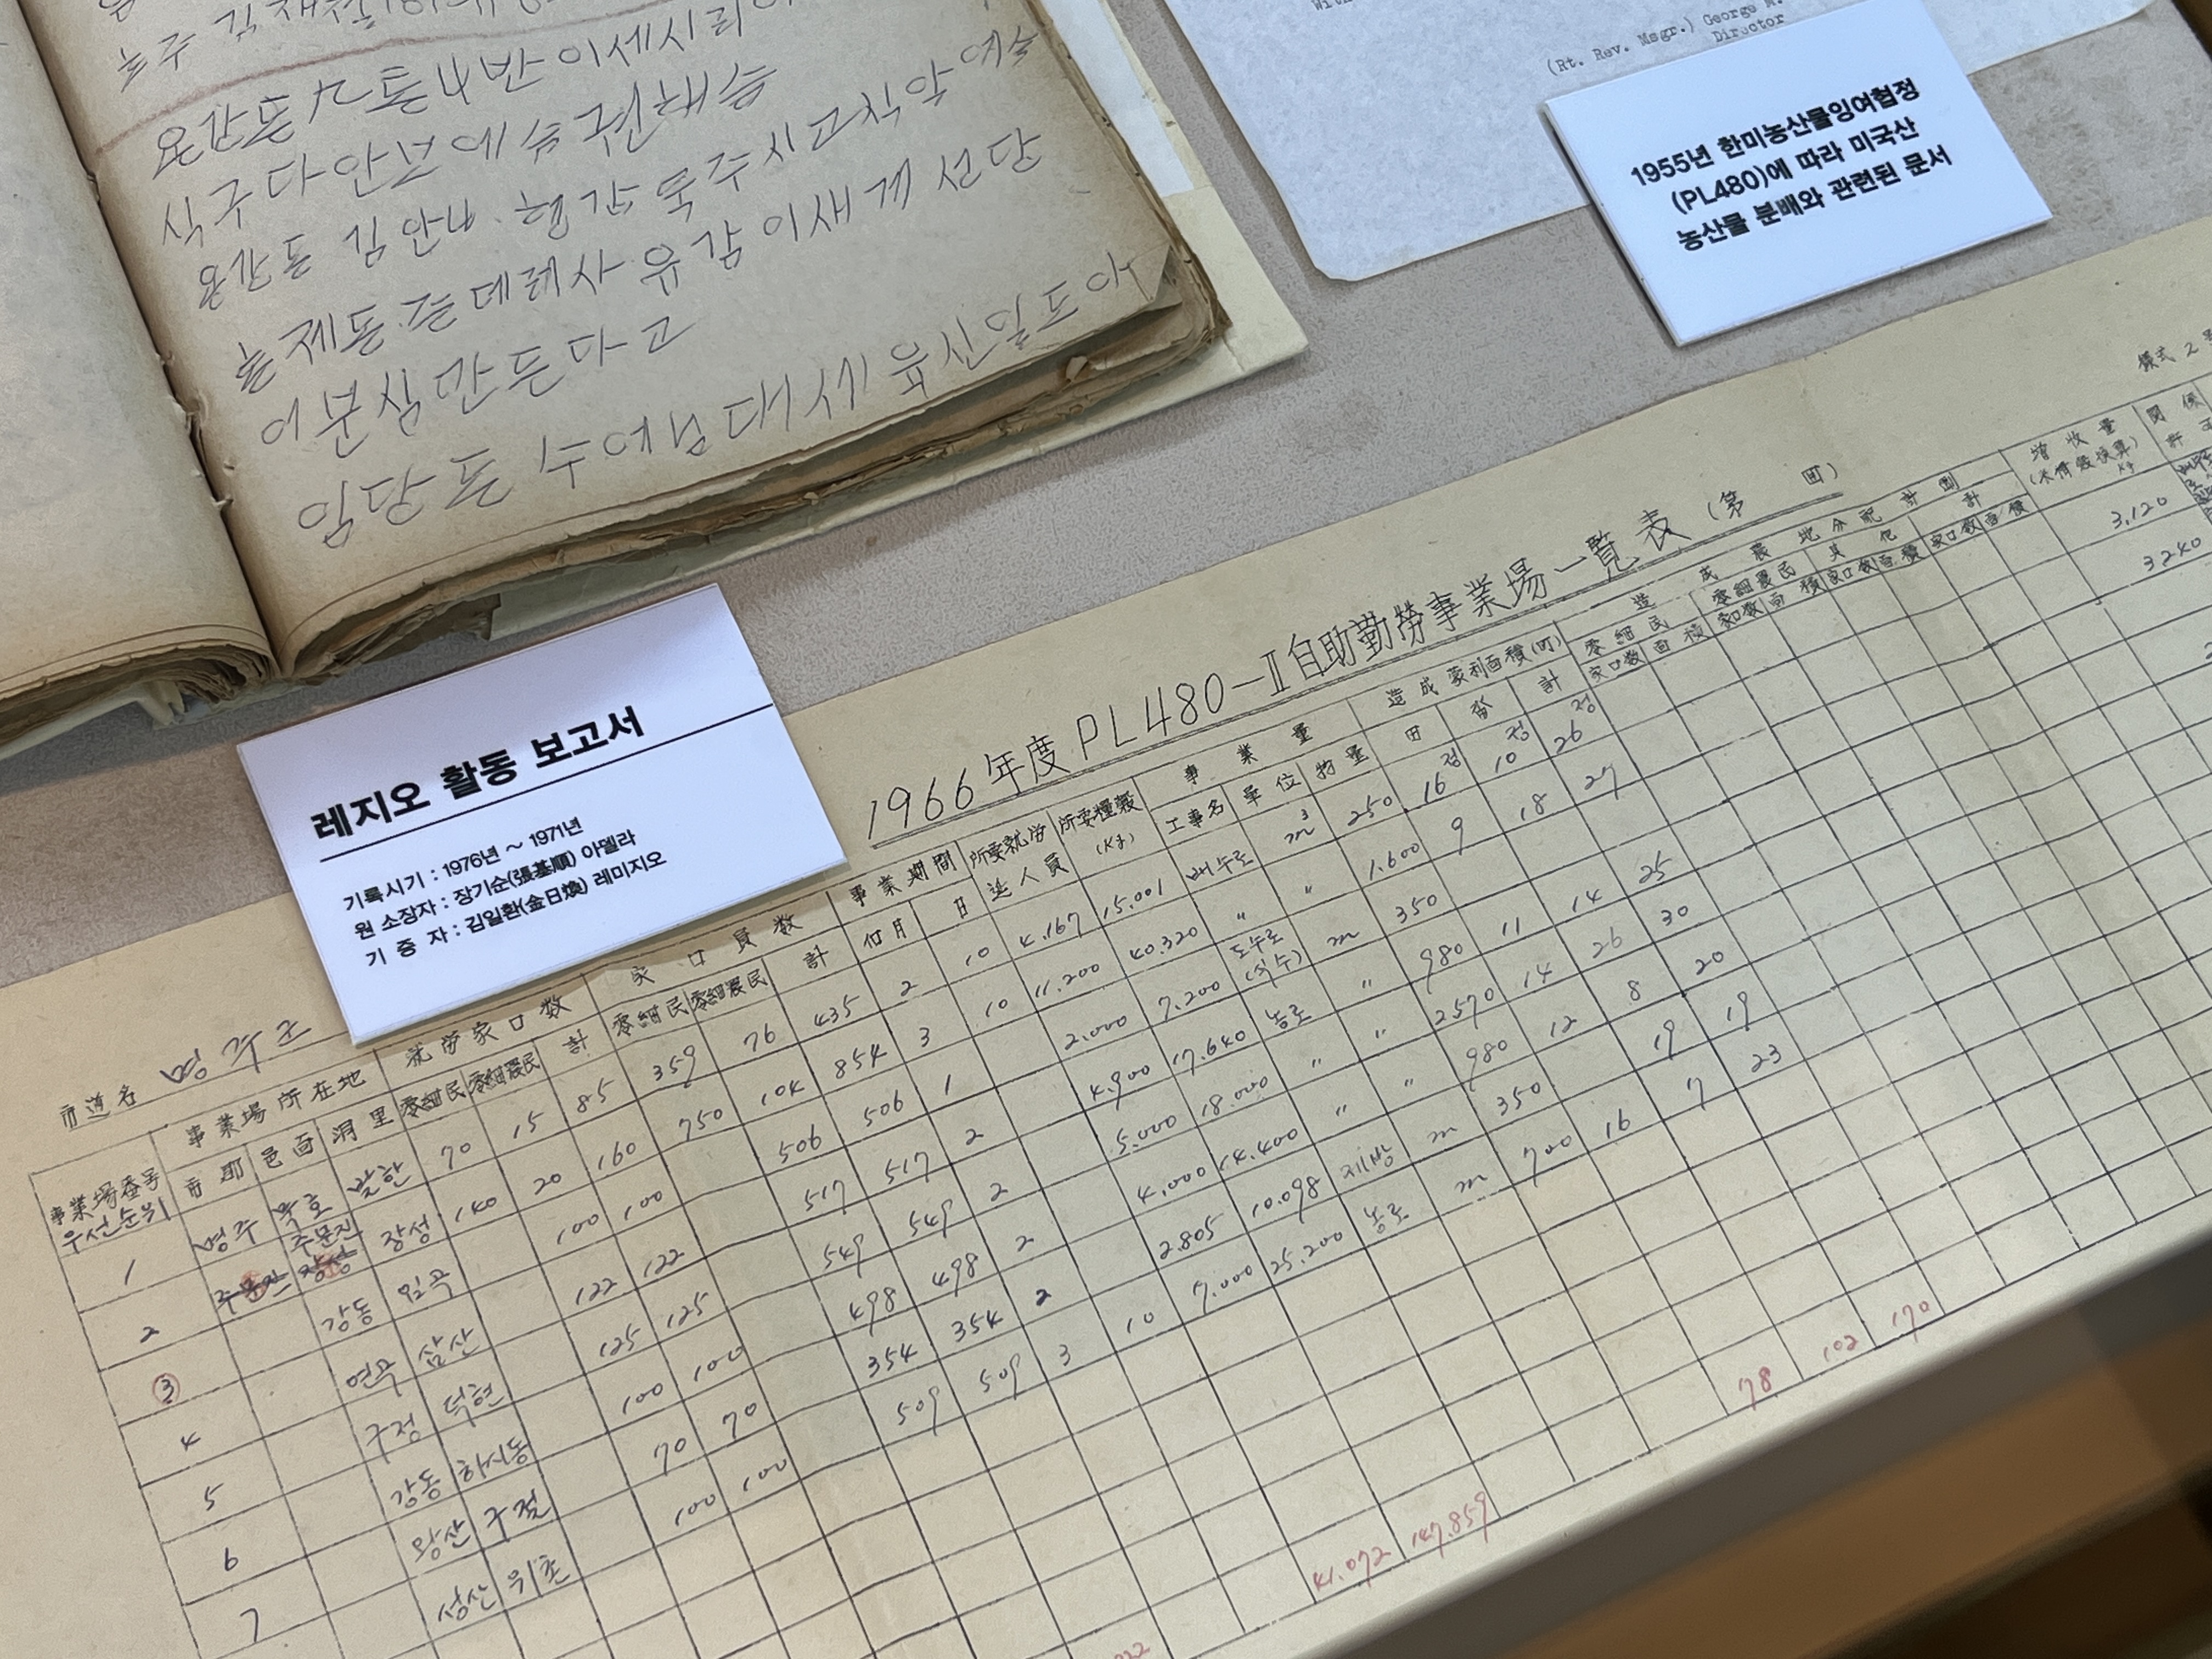 온감동 스통4반 이세시리아
식구다 안보 예슴 권해슴
용강동 김안나 헝간 묵주시고 식약 예슴
놀제동 존데레사 유감 이새게 선당
이분심 만든다고
임당동 수예넘 대세 육신일도아
With
(Rt. Rev. Msgr.) George M.
Director
1955년 한미농산물잉여협정
(PL480)에 따라 미국산
농산물 분배와 관련된 문서
레지오 활동 보고서
기록시기 : 1976년 ~ 1971년
원 소장자 : 장기순(張基順) 아멜라
기 증 자 : 김일환(金日煥) 레미지오
樣式 2号
1966年度 PL480-Ⅱ 自助勤勞事業場一覧表 (第 町)
市道名 명주군
事業場番号 우선순위 事業場所在地 就労家口数 家口員数 事業期間 所要就労延人員 所要糧穀(Kg) 事業量 造成蒙利面積(町) 造成農地分配計劃 増收量 関係
市郡 邑面 洞里 零細民 零細農民 計 零細民 零細農民 計 月 日 工事名 單位 物量 田 畓 計 零細民 零細農民 其他 計
家口数 面積 家口数 面積 家口数 面積 家口数 面積
1 명주 묵호 발한 70 15 85 359 76 435 2 10 4.167 15.001 배수로 m³ 250 16 10 26 3,120
2 주문진 장성 140 20 160 750 104 854 3 10 11.200 40.320 〃 〃 1.600 9 18 27 3240
③ 강동 임곡 100 100 506 506 1 2.000 7.200 도수로(식수) m 350
4 연곡 삼산 122 122 517 517 2 4.900 17.640 농로 〃 980 11 14 25
5 구정 덕현 125 125 549 549 2 5.000 18.000 〃 〃 2570 14 26 30
6 강동 하시동 100 100 498 498 2 4.000 14.400 〃 〃 980 12 8 20
7 왕산 구절 70 70 354 354 2 2.805 10.098 제방 m 350 19 19
성산 위촌 100 100 509 509 3 10 7.000 25.200 농로 m 700 16 7 23
41.072 147.859 78 102 170